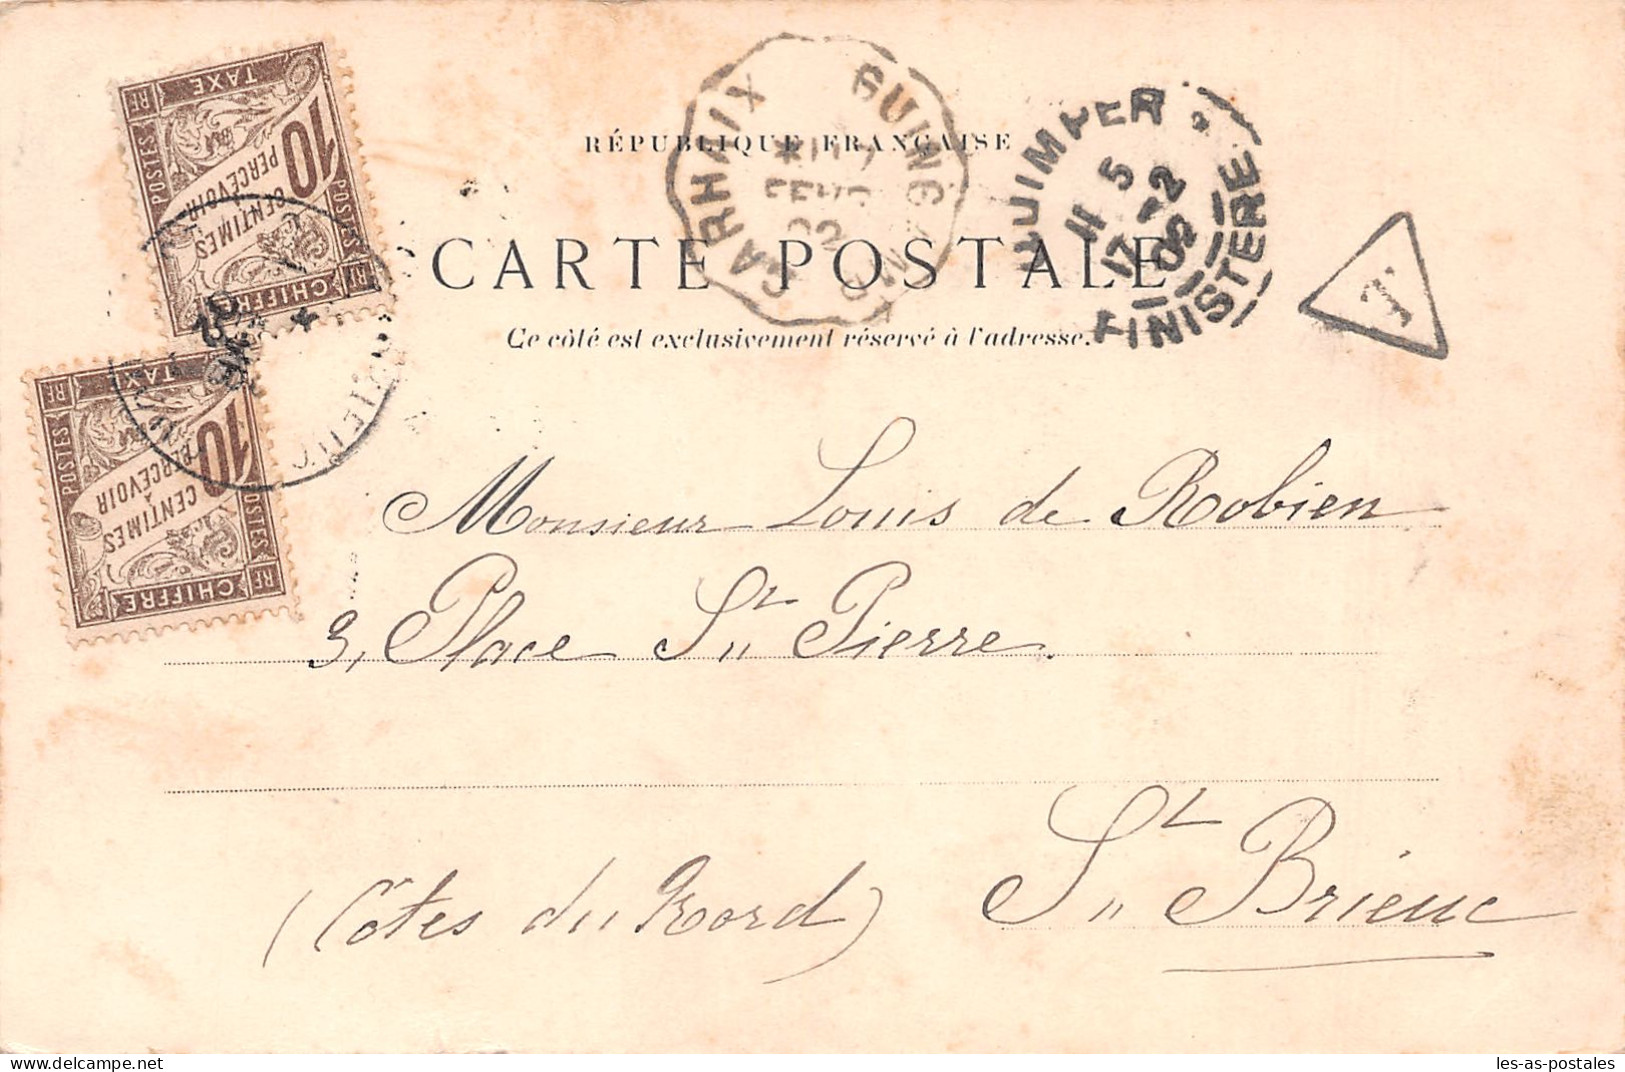 RÉPUBLIQUE FRANÇAISE
CARTE POSTALE
Ce côté est exclusivement réservé à l'adresse.
RF TAXE
POSTES
10
CENTIMES
À
PERCEVOIR
POSTES
CHIFFRE RF
RF TAXE
POSTES
10
CENTIMES
À
PERCEVOIR
POSTES
CHIFFRE RF
CARHAIX
QUIMPER
11 5
17-2
02
FINISTERE
T
Monsieur Louis de Robien
3, Place St Pierre
St Brieuc
(Côtes du Nord)
les-as-postales